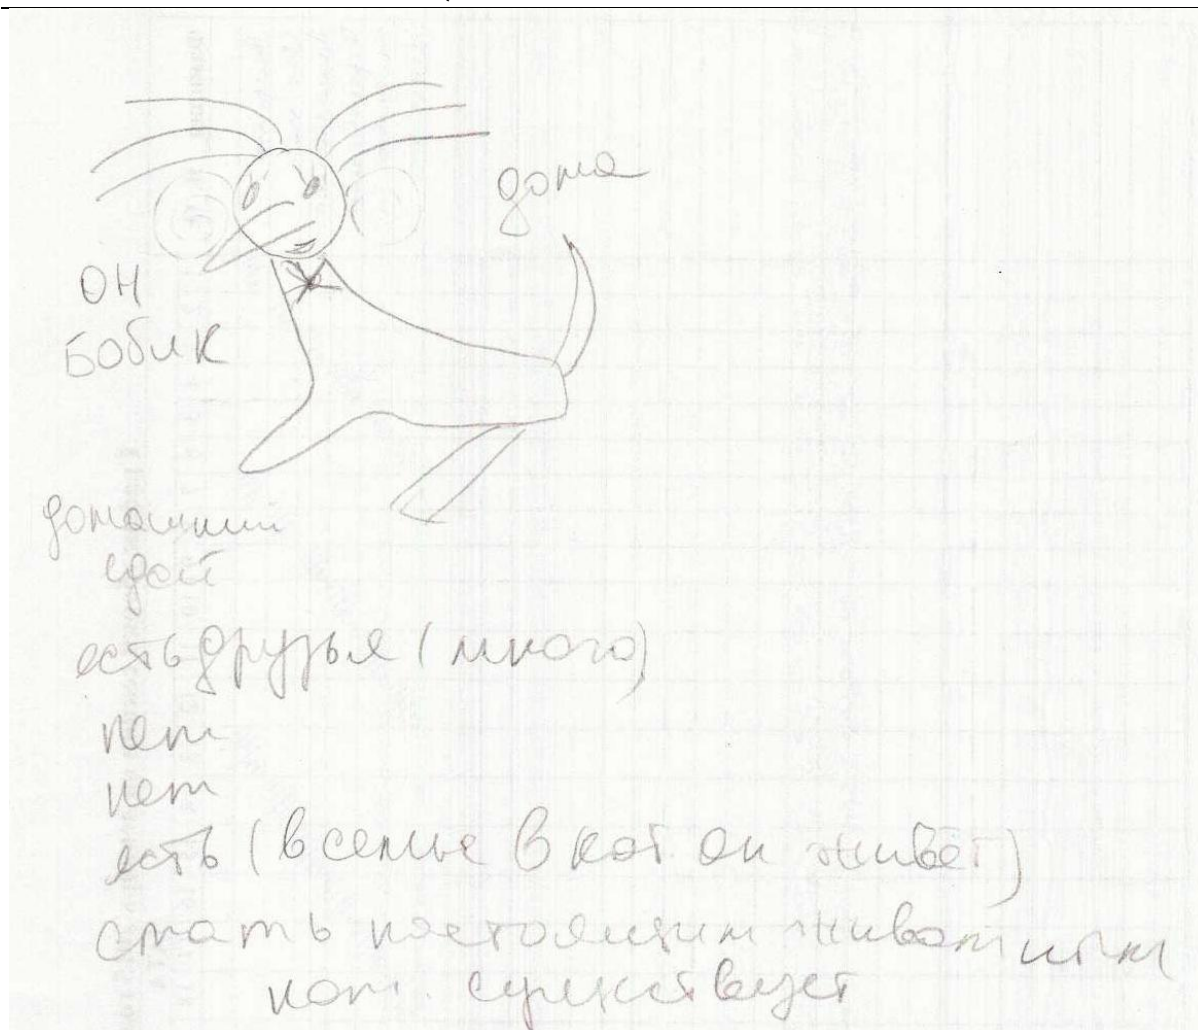 дома
ОН
БОБИК
домашний
едой
есть друзья (много)
нет
нет
есть (в семье в кот. он живёт)
стать настоящим животным
кот. существует